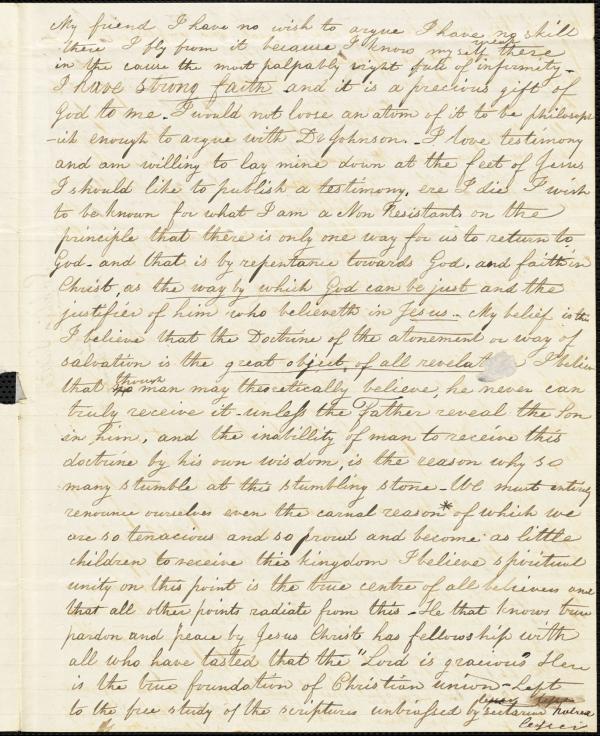 My friend I have no wish to argue I have no skill
there I fly from it because I know myself there
in the cause the most palpably right full of infirmity -
I have strong faith and it is a precious gift of
God to me. I would not loose an atom of it to be philosoph
-ick enough to argue with Dr Johnson. - I love testimony
and am willing to lay mine down at the feet of Jesus
I should like to publish a testimony, ere I die I wish
to be known for what I am a Non Resistants on the
principle that there is only one way for us to return to
God - and that is by repentance towards God, and faith in
Christ, as the way by which God can be just and the
justifier of him who believeth in Jesus - My belief is this
I believe that the Doctrine of the atonement or way of
salvation is the great object of all I believe
that though man may theoretically believe, he never can
truly receive it unless the Father reveal the Son
in him, and the inabillity of man to receive this
doctrine by his own wisdom, is the reason why so
many stumble at this stumbling stone - We must entirely
renounce ourselves even the carnal reason* of which we
are so tenacious and so proud and become as little
children to receive this kingdom I believe spiritual
unity on this point is the true centre of all believers and
that all other points radiate from this - He that knows true
pardon and peace by Jesus Christ has fellowship with
all who have tasted that the "Lord is gracious" Here
is the true foundation of Christian union - Left
to the free study of the scriptures unbiassed by sectarian